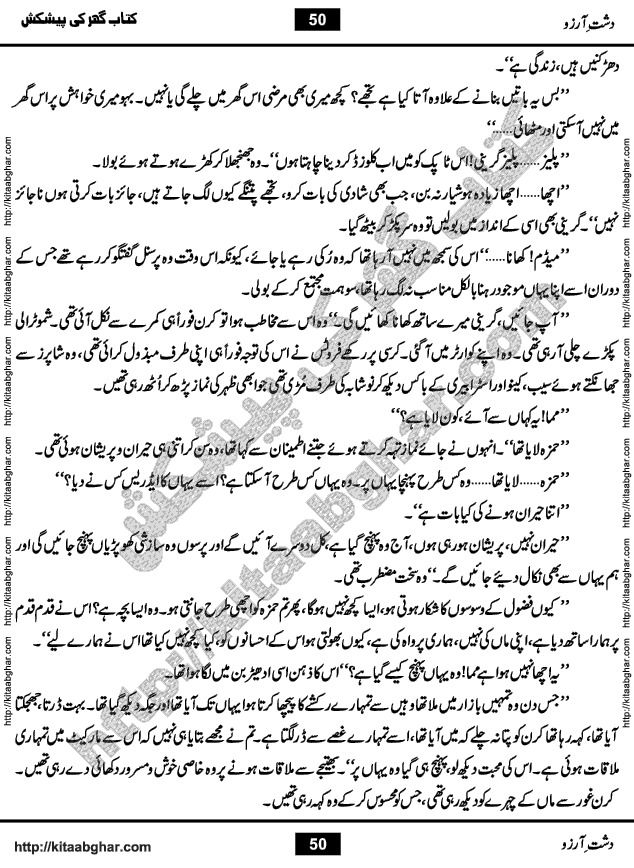 کتاب گھر کی پیشکش
50
دشتِ آرزو
دھڑکنیں ہیں، زندگی ہے‘‘۔
’’بس یہ باتیں بنانے کے علاوہ آتا کیا ہے تجھے؟ کچھ میری بھی مرضی اس گھر میں چلے گی یا نہیں۔ بہو میری خواہش پر اس گھر
میں نہیں آ سکتی اور مٹھائی.....‘‘
’’پلیز...... پلیز گرینی! اس ٹاپک کو میں اب کلوز ڈ کر دینا چاہتا ہوں‘‘۔ وہ جھنجھلا کر کھڑے ہوتے ہوئے بولا۔
’’اچھا...... اچھا زیادہ ہوشیار نہ بن، جب بھی شادی کی بات کرو، تجھے پتنگے کیوں لگ جاتے ہیں، جائز بات کرتی ہوں ناجائز
نہیں‘‘۔ گرینی بھی اسی کے انداز میں بولیں تو وہ سر پکڑ کر بیٹھ گیا۔
’’میڈم! کھانا.....‘‘ اس کی سمجھ میں نہیں آ رہا تھا کہ وہ رُکی رہے یا جائے، کیونکہ اس وقت وہ پرسنل گفتگو کر رہے تھے جس کے
دوران اسے اپنا یہاں موجود رہنا بالکل مناسب نہ لگ رہا تھا، سو ہمت مجتمع کر کے بولی۔
’’آپ جائیں، گرینی میرے ساتھ کھانا کھائیں گی۔‘‘ وہ اس سے مخاطب ہوا تو کرن فوراً ہی کمرے سے نکل آئی تھی۔ شموٹرالی
پکڑے چلی آ رہی تھی۔ وہ اپنے کوارٹر میں آ گئی۔ کرسی پر رکھے فروٹس نے اس کی توجہ فوراً ہی اپنی طرف مبذول کرائی تھی، وہ شاپرز سے
جھانکتے ہوئے سیب، کینو اور اسٹرابیری کے باکس دیکھ کر نوشابہ کی طرف مُڑی تھی جو ابھی ظہر کی نماز پڑھ کر اُٹھ رہی تھیں۔
’’مما! یہ کہاں سے آئے، کون لایا ہے؟‘‘
’’حمزہ لایا تھا‘‘۔ انہوں نے جائے نماز تہہ کرتے ہوئے جتنے اطمینان سے کہا تھا، وہ سن کر اتنی ہی حیران و پریشان ہوئی تھی۔
’’حمزہ...... لایا تھا!...... وہ کس طرح پہنچا یہاں پر۔ وہ یہاں کس طرح آ سکتا ہے؟ اسے یہاں کا ایڈریس کس نے دیا؟‘‘
’’اتنا حیران ہونے کی کیا بات ہے‘‘۔
’’حیران نہیں، پریشان ہو رہی ہوں، آج وہ پہنچ گیا ہے، کل دوسرے آئیں گے اور پرسوں وہ سازشی کھوپڑیاں پہنچ جائیں گی اور
ہم یہاں سے بھی نکال دیئے جائیں گے۔‘‘ وہ سخت مضطرب تھی۔
’’کیوں فضول کے وسوسوں کا شکار ہوتی ہو، ایسا کچھ نہیں ہوگا، پھر تم حمزہ کو اچھی طرح جانتی ہو۔ وہ ایسا بچہ ہے؟ اس نے قدم قدم
پر ہمارا ساتھ دیا ہے، اپنی ماں کی نہیں، ہماری پرواہ کی ہے، کیوں بھولتی ہو اس کے احسانوں کو، کیا کچھ نہیں کیا تھا اس نے ہمارے لیے‘‘۔
’’یہ اچھا نہیں ہوا ہے مما! وہ یہاں پہنچ کیسے گیا ہے؟‘‘ اس کا ذہن اسی ادھیڑبن میں لگا ہوا تھا۔
’’جس دن وہ تمہیں بازار میں ملا تھا وہیں سے تمہارے رکشے کا پیچھا کرتا ہوا یہاں تک آیا تھا اور جگہ دیکھ گیا تھا۔ بہت ڈرتا، جھجکتا
آیا تھا، کہہ رہا تھا کرن کو پتا نہ چلے کہ میں آیا تھا، اسے تمہارے غصے سے ڈر لگتا ہے۔ تم نے مجھے بتایا ہی نہیں کہ اس سے مارکیٹ میں تمہاری
ملاقات ہوئی ہے۔ اس کی محبت دیکھ لو، پہنچ ہی گیا وہ یہاں پر‘‘۔ بھتیجے سے ملاقات ہونے پر وہ خاصی خوش و مسرور دکھائی دے رہی تھیں۔
کرن غور سے ماں کے چہرے کو دیکھ رہی تھی، جس کو محسوس کر کے وہ کہہ رہی تھیں۔
http://kitaabghar.com
http://kitaabghar.com
http://kitaabghar.com
http://kitaabghar.com
http://kitaabghar.com
http://kitaabghar.com
http://kitaabghar.com
http://kitaabghar.com
http://kitaabghar.com
http://kitaabghar.com
http://kitaabghar.com
http://kitaabghar.com
کتاب گھر کی پیشکش
http://kitaabghar.com
http://kitaabghar.com
50
دشتِ آرزو